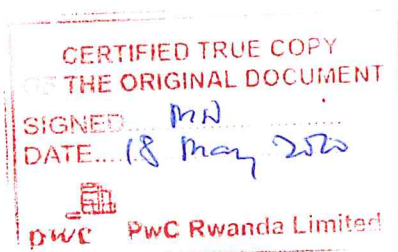 CERTIFIED TRUE COPY
OF THE ORIGINAL DOCUMENT
SIGNED....MN
DATE....18 May 2020
pwc PwC Rwanda Limited